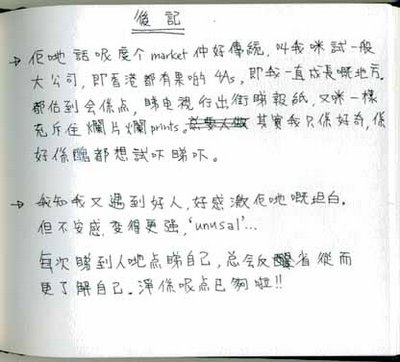 後記
→ 佢哋話呢度个market仲好傳統, 叫我咪試一般
大公司, 即香港都有果啲4As, 即我一直成長嘅地方.
都估到会係点, 睇电视行出街睇報紙, 又咪一樣
充斥住爛片爛prints. 其實我只係好奇, 係
好係醜都想試吓睇吓.
→ 我知我又遇到好人, 好感激佢哋嘅坦白.
但不安感, 变得更强, 'unusal'...
每次睇到人哋点睇自己, 总会反省從而
更了解自己. 淨係呢点已夠啦!!